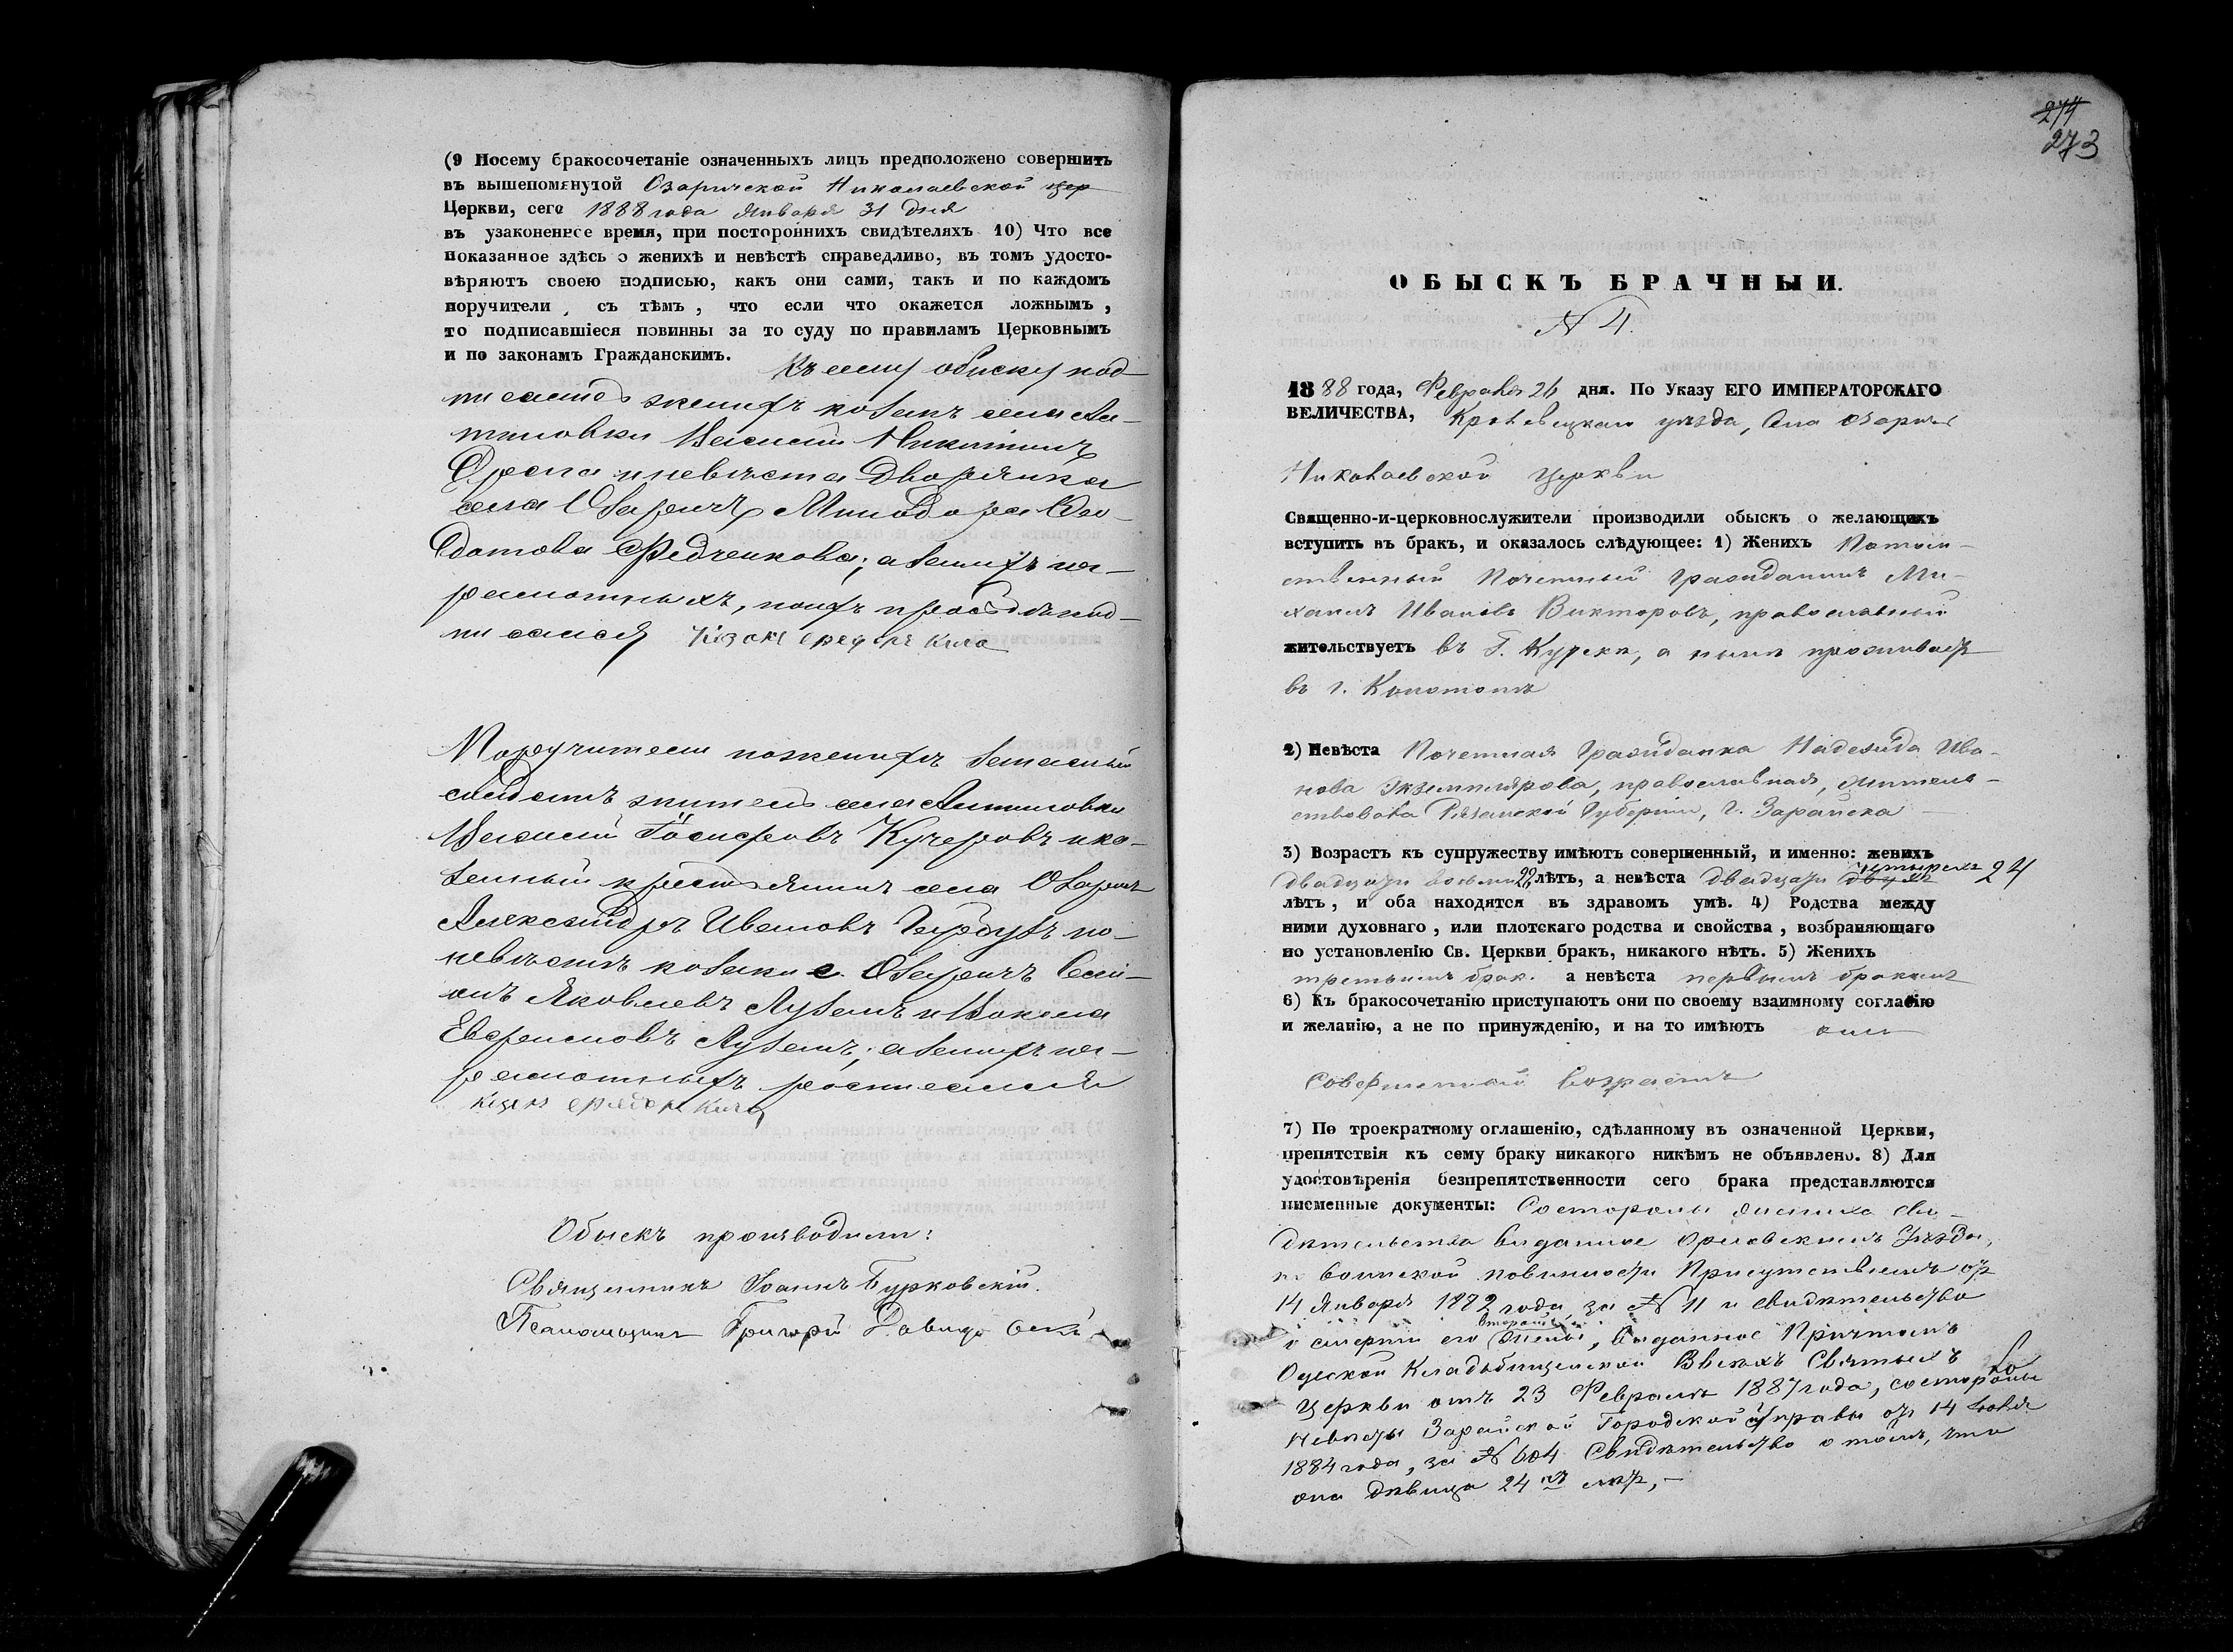 (9 Посему бракосочетаніе означенныхъ лицъ предположено совершить
въ вышепомянутой Озаричской Николаевской цер
Церкви, сего 1888 года Января 31 дня
въ узаконенное время, при постороннихъ свидѣтеляхъ 10) Что все
показанное здѣсь о женихѣ и невѣстѣ справедливо, въ томъ удосто-
вѣряютъ своею подписью, какъ они сами, такъ и по каждомъ
поручители, съ тѣмъ, что если что окажется ложнымъ,
то подписавшіеся повинны за то суду по правиламъ Церковнымъ
и по законамъ Гражданскимъ.
Къ сему обыску под-
писались женихъ козакъ села
Никитинъ
и невѣста Дворянка
села Озаричъ Минодора Ѳео-
дотова Федченкова; а за нихъ не-
грамотныхъ, по ихъ прозьбѣ под-
писался
Поручители по женихѣ запасный
солдатъ житель села
Іосифовъ Кучеровъ и ка-
зенный крестьянинъ села Озаричъ
Александръ Ивановъ по-
невѣстѣ козаки с. Озаричъ
Яковлевъ Лузанъ и
Лузанъ; а за нихъ не-
грамотныхъ росписался
Обыскъ производили:
Священникъ Іоаннъ Бурковскій.
Псаломщикъ Григорій
274
273
ОБЫСКЪ БРАЧНЫЙ.
N 4.
1888 года, Февраля 26 дня. По Указу ЕГО ИМПЕРАТОРСКАГО
ВЕЛИЧЕСТВА, Кролевецкаго уѣзда, Села Озаричъ
Николаевской Церкви
Священно-и-церковнослужители производили обыскъ о желающихъ
вступить въ бракъ, и оказалось слѣдующее: 1) Женихъ Потом-
ственный Почетный Гражданинъ Ми-
хаилъ Ивановъ Викторовъ, православный
жительствуетъ въ Г. Курскѣ, а нынѣ проживаетъ
въ г. Конотопѣ
2) Невѣста Почетная Гражданка Надежда Ива-
нова Экземплярова, православная, житель-
ствовала Рязанской Губерніи, г. Зарайска
3) Возрастъ къ супружеству имѣютъ совершенный, и именно: женихъ
двадцати восьми лѣтъ, а невѣста двадцати двухъ четырехъ 24
лѣтъ, и оба находятся въ здравомъ умѣ. 4) Родства между
ними духовнаго, или плотскаго родства и свойства, возбраняющаго
по установленію Св. Церкви бракъ, никакого нѣтъ. 5) Женихъ
третьимъ брак. а невѣста первымъ бракомъ
6) Къ бракосочетанію приступаютъ они по своему взаимному согласію
и желанію, а не по принужденію, и на то имѣютъ они
совершенный возрастъ
7) По троекратному оглашенію, сдѣланному въ означенной Церкви,
препятствія къ сему браку никакого никѣмъ не объявлено. 8) Для
удостовѣренія безпрепятственности сего брака представляются
писменные документы: Состороны жениха сви-
дѣтельства выданное Орловскимъ Уѣзды,
по воинской повинности Присутствіемъ отъ
14 Января 1882 года за N 11 и свидѣтельство
о смерти его второй жены, выданное Причтомъ
Одеской Кладбищенской Всѣхъ Святыхъ
Церкви отъ 23 Февраля 1887 года, со стороны
невѣсты Зарайской Городской Управы отъ 14 Іюня
1884 года, за N 604 Свидѣтельство о томъ, что
она дѣвица 24 лѣтъ,-